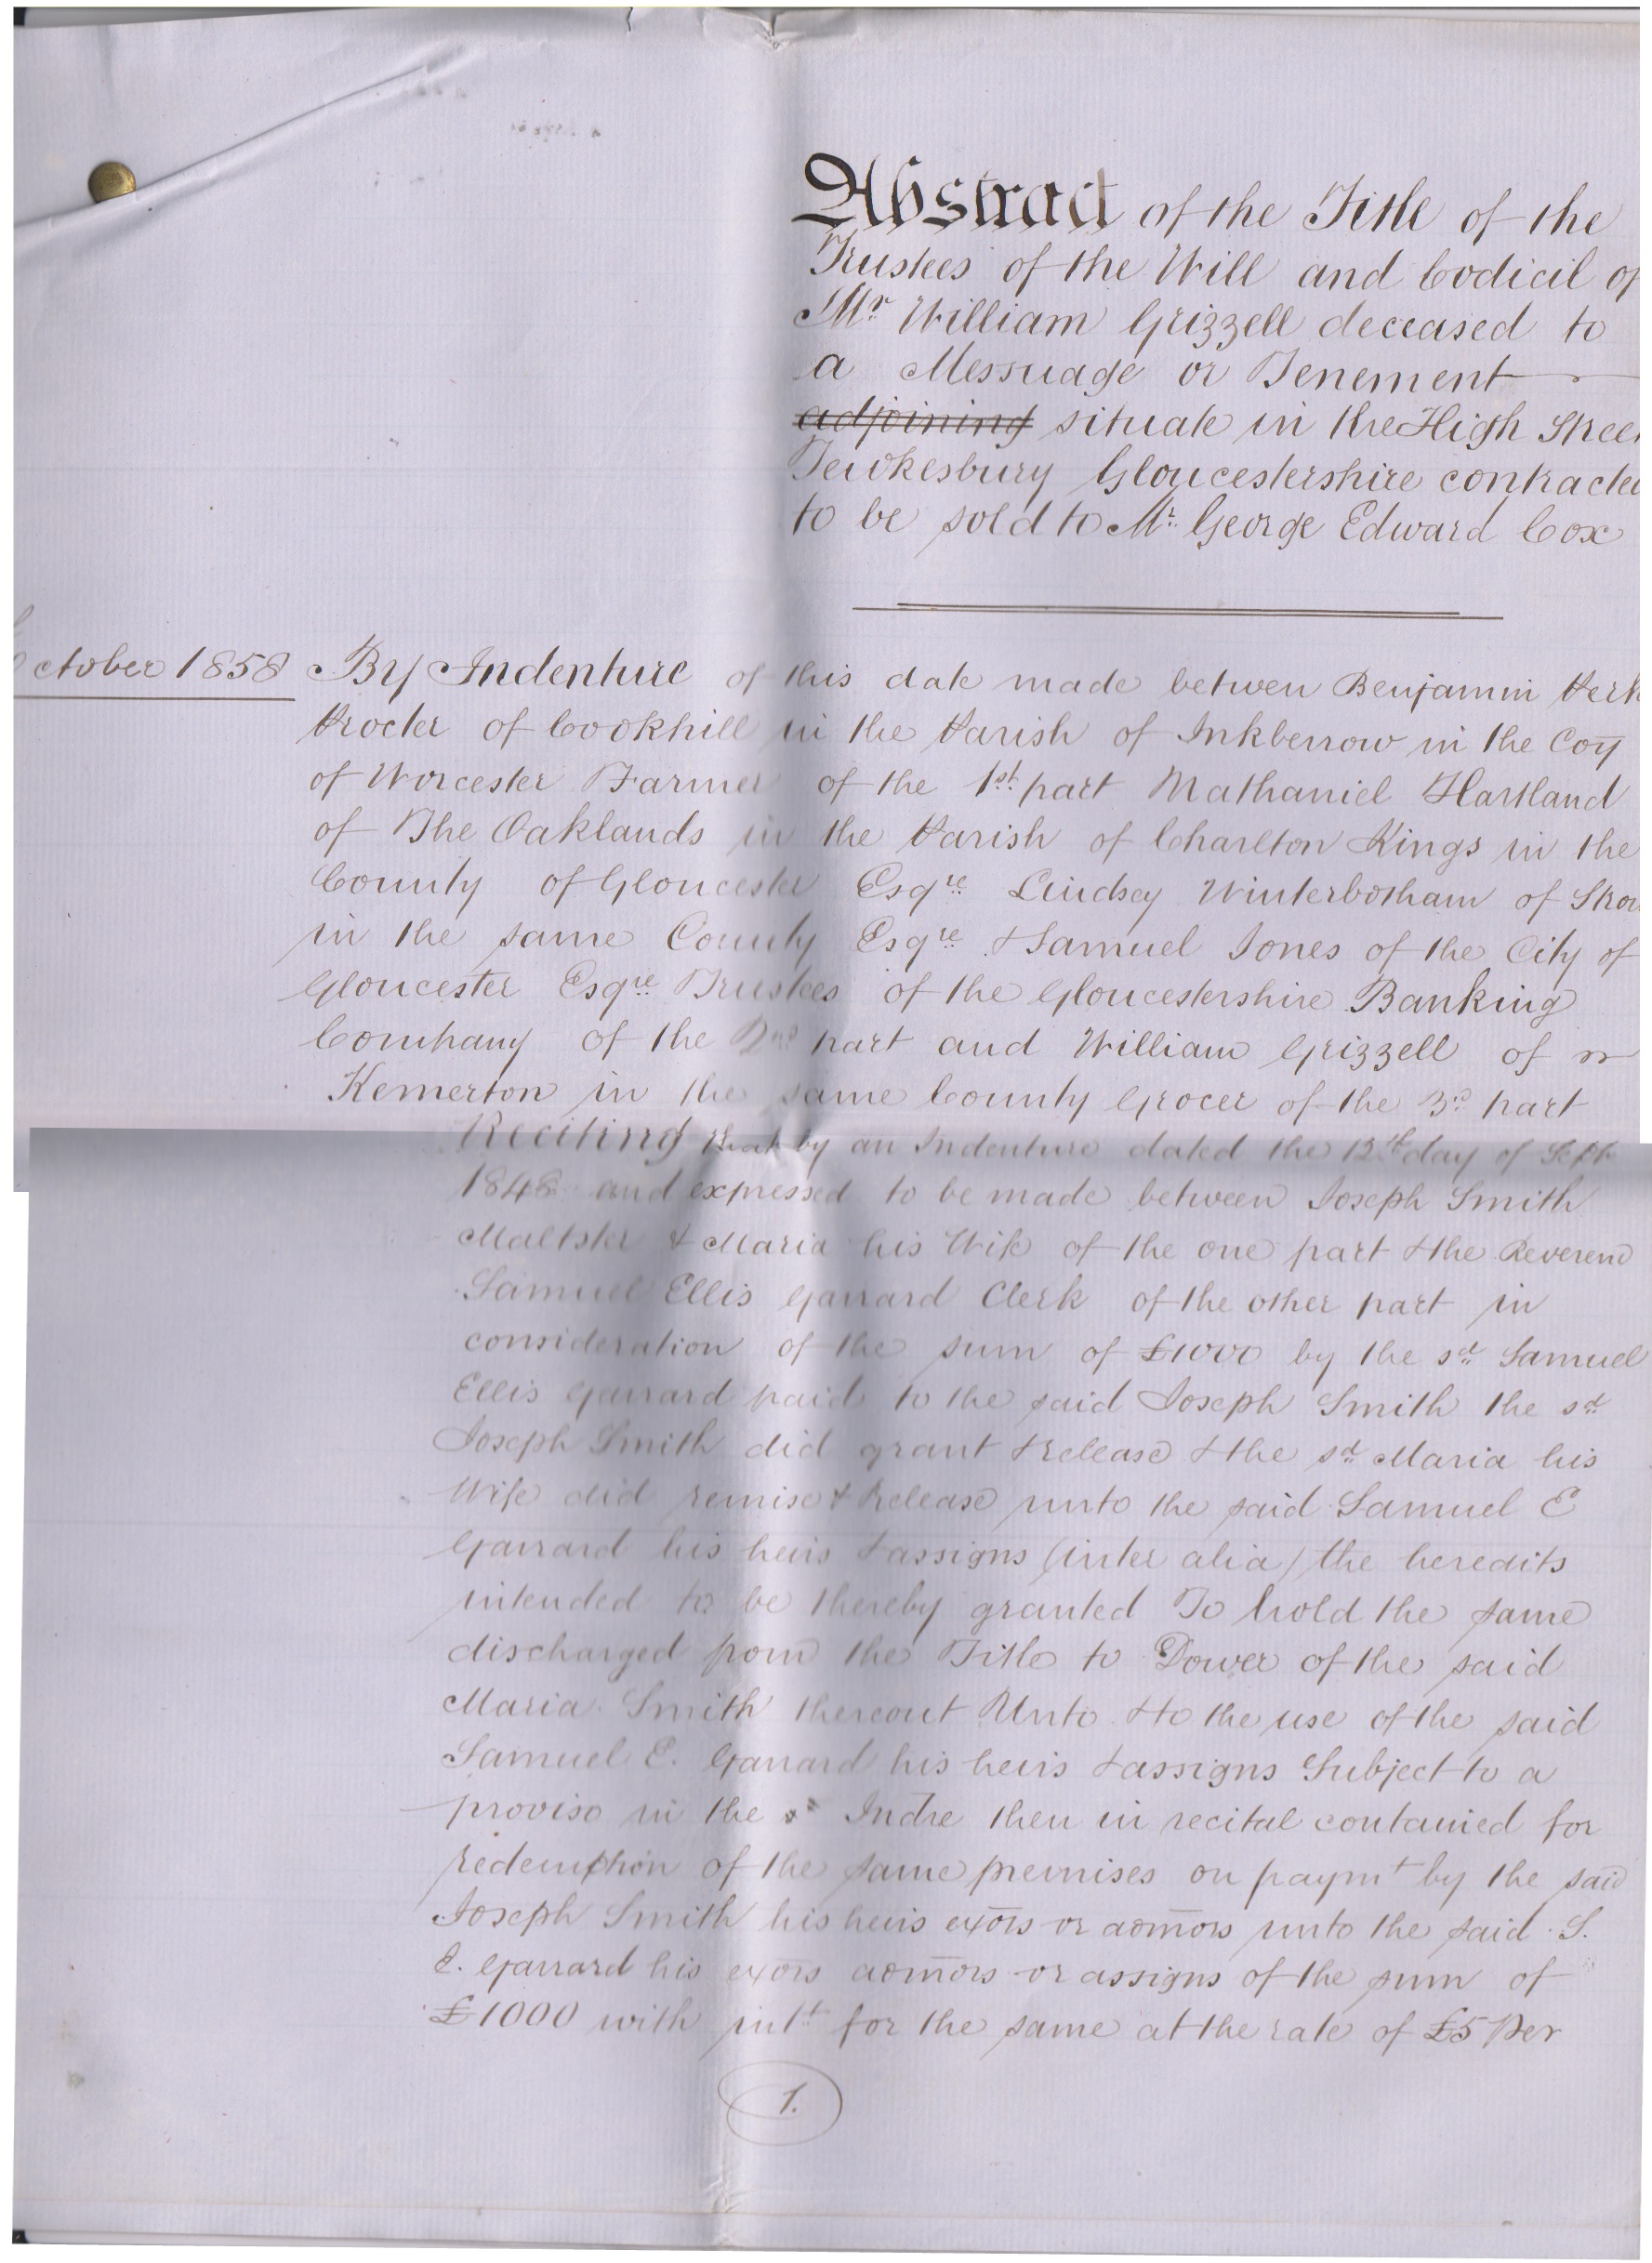 Abstract of the Title of the
Trustees of the Will and Codicil of
Mr William Grizzell deceased to
a Messuage or Tenement
adjoining situate in the High Stree
Tewkesbury Gloucestershire contracte
to be sold to Mr George Edward Cox
ctober 1858 By Indenture of this date made betwen Benjamin Perk
Procter of Cookhill in the Parish of Inkberrow in the Coy
of Worcester Farmer of the 1st part Nathaniel Hartland
of The Oaklands in the Parish of Charlton Kings in the
County of Gloucester Esqre Lindsey Winterbotham of Strou
in the same County Esqre & Samuel Jones of the City of
Gloucester Esqre Trustees of the Gloucestershire Banking
Company of the 2nd part and William Grizzell of
Kemerton in the same County Grocer of the 3rd part
Reciting that by an Indenture dated the 12th day of Sept
1848 and expressed to be made between Joseph Smith
Maltster & Maria his Wife of the one part & the Reverend
Samuel Ellis Garrard Clerk of the other part in
consideration of the sum of £1000 by the sd Samuel
Ellis Garrard paid to the said Joseph Smith the sd
Joseph Smith did grant & release & the sd Maria his
Wife did remise & Release unto the said Samuel E
Garrard his heirs & assigns (inter alia) the heredits
intended to be thereby granted To hold the same
discharged from the Title to Dower of the said
Maria Smith thereout Unto & to the use of the said
Samuel E. Garrard his heirs & assigns Subject to a
proviso in the sd Indre then in recital contained for
redemption of the same premises on paymt by the said
Joseph Smith his heirs exors or admors unto the said S.
E. Garrard his exors admors or assigns of the sum of
£1000 with intt for the same at the rate of £5 Per
1.